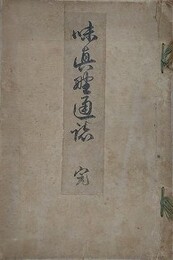 味真野通誌 完